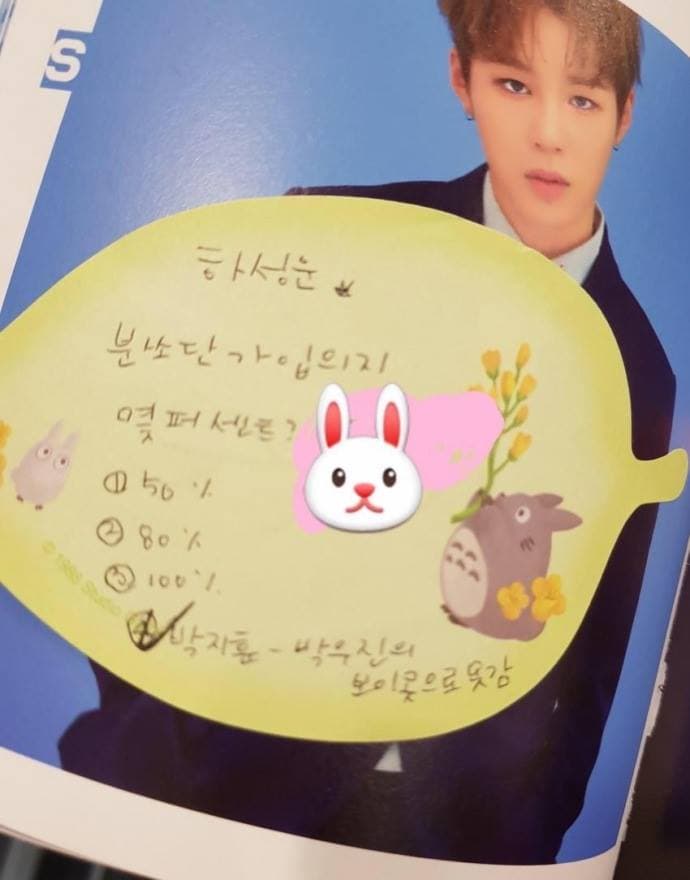 S
하성운
분쏘단 가입의지
몇 퍼센트?
① 50 %
② 80 %
③ 100 %
④ 박지훈 - 박우진의
보이콧으로 못감
© 1988 Studio